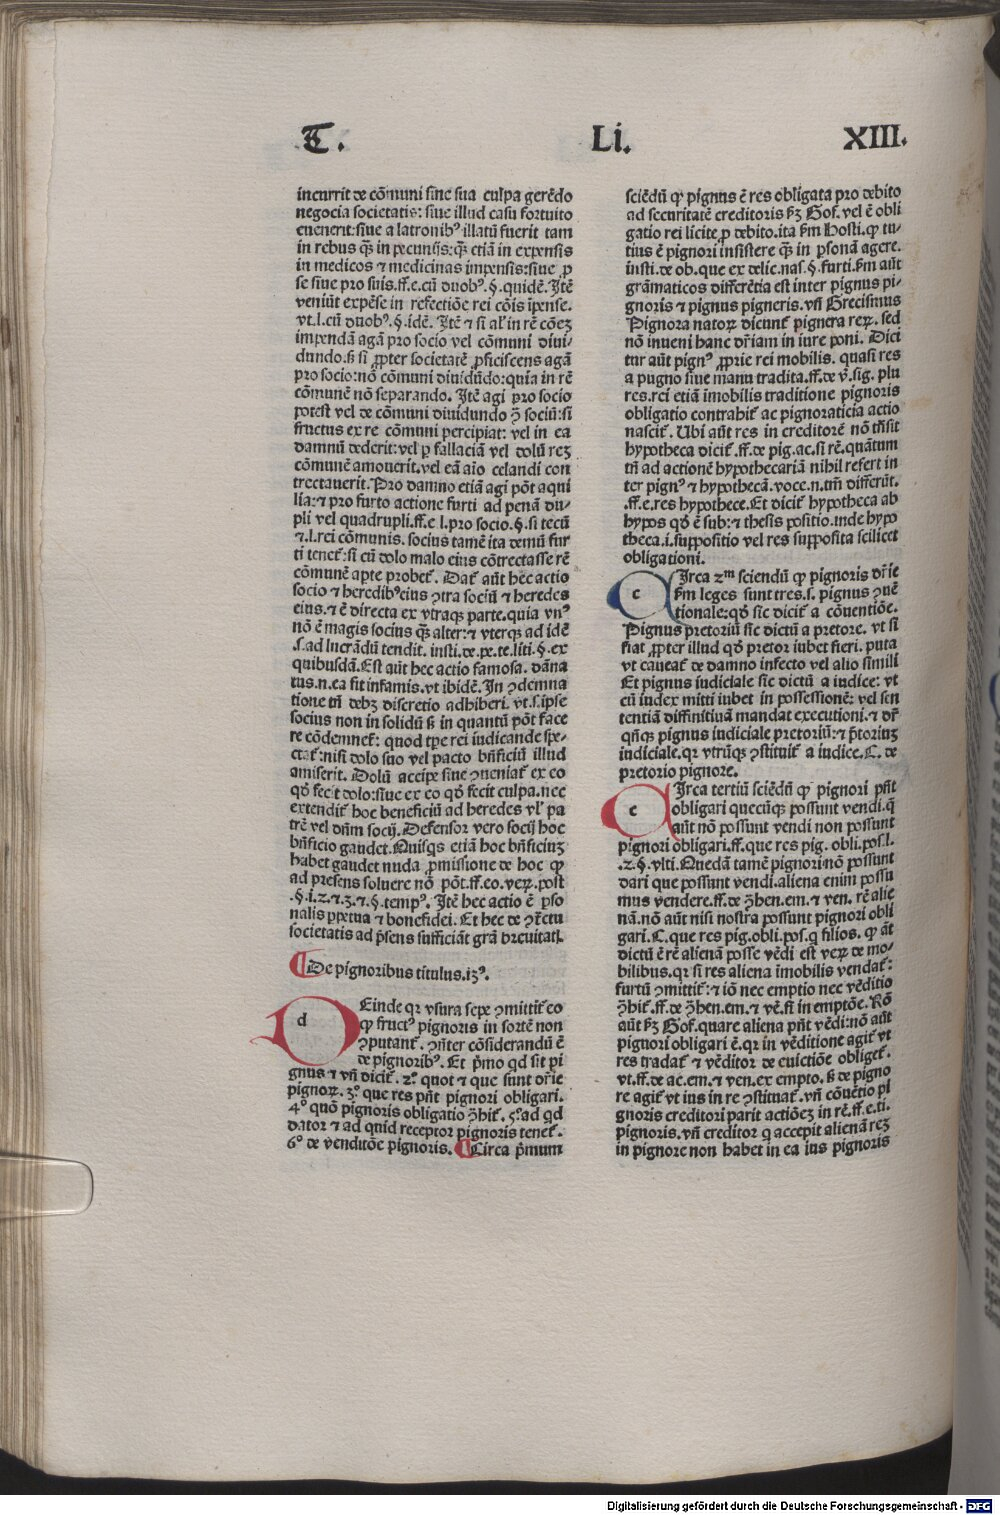 T. Li. XIII.
incurrit de cōmuni sine sua culpa gerēdo
negocia societatis: siue illud casu fortuito
euenerit: siue a latronibꝰ illatū fuerit tam
in rebus qꝫ in pecuniis: qꝫ etiā in expensis
in medicos ⁊ medicinas impensis: siue ꝓ
se siue pro suis. ff. e. cū duobꝰ. §. quidē. Itē
veniūt expēse in refectiōe rei cōis īpense.
vt. l. cū duobꝰ. §. idē. Itē ⁊ si al' in rē cōeꝫ
impendā agā pro socio vel cōmuni diui⸗
dundo. ꝭ si ꝓpter societatē ꝓficiscens agā
pro socio: nō cōmuni diuidūdo: quia in rē
cōmunē nō separando. Itē agi pro socio
potest vel de cōmuni diuidundo ↄ̄ sociū: si
fructus ex re cōmuni percipiat: vel in ea
damnū dederit: vel ꝑ fallaciā vel dolū reꝫ
cōmunē amouerit. vel eā aīo celandi con
trectauerit. Pro damno etiā agi pōt aqui
lia: ⁊ pro furto actione furti ad penā du⸗
pli vel quadrupli. ff. e l. pro socio. §. si tecū
⁊. l. rei cōmunis. socius tamē ita demū fur
ti tenet̄: si cū dolo malo eius cōtrectasse rē
cōmunē apte probet̄. Dat̄ aūt hec actio
socio ⁊ heredibꝰ eius ↄtra sociū ⁊ heredes
eius. ⁊ ē directa ex vtraqꝫ parte. quia vnꝰ
nō ē magis socius qꝫ alter: ⁊ vterqꝫ ad idē
.s. ad lucrādū tendit. insti. de. pe. te. liti. §. ex
quibusdā. Est aūt hec actio famosa. dāna
tus. n. ea fit infamis. vt ibidē. In ↄdemna
tione tn̄ debꝫ discretio adhiberi. vt. s. ipse
socius non in solidū ꝭ in quantū pōt face
re cōdemnet̄: quod tꝑe rei iudicande spe⸗
ctat̄: nisi dolo suo vel pacto bn̄ficiū illud
amiserit. Dolū accipe siue ↄueniat̄ ex eo
qd̓ fecit dolo: siue ex eo qd̓ fecit culpa. nec
extendit̄ hoc beneficiū ad heredes vl' pa
trē vel dn̄m socij. Defensor vero socij hoc
bn̄ficio gaudet. Quisqꝫ etiā hoc bn̄ficiuꝫ
habet gaudet nuda ꝓmissione de hoc ꝙ
ad presens soluere nō pōt. ff. eo. veꝝ. post
.§. i. 2. ⁊. 3. ⁊ §. tempꝰ. Itē hec actio ē ꝑso
nalis ꝑpetua ⁊ bonefidei. Et hec de ↄ̄ctu
societatis ad p̄sens sufficiāt grā breuitatꝭ.
De pignoribus titulus. i3ꝰ.
dEinde qr vsura sepe ↄmittit̄ eo
ꝙ fructꝰ pignoris in sortē non
ↄputant̄. ↄn̄ter cōsiderandū ē
de pignoribꝰ. Et p̄mo qd sit pi
gnus ⁊ vn̄ dicit̄. 2.° quot ⁊ que sunt dr̄ie
pignoꝝ. 3.° que res pn̄t pignori obligari.
4° quō pignoris obligatio ↄ̄hit̄. 5.° ad qd
dator ⁊ ad quid receptor pignoris tenet̄.
6° de venditōe pignoris. Circa p̄mum
sciēdū ꝙ pignus ē res obligata pro debito
ad securitatē creditoris ẜꝫ Gof. vel ē obli
gatio rei licite ꝓ debito. ita ẜm Hosti. ꝙ tu⸗
tius ē pignori insistere qꝫ in ꝑsonā agere.
insti. de ob. que ex delic. nas. §. furti. ẜm aūt
grāmaticos differētia est inter pignus pi⸗
gnoris ⁊ pignus pigneris. vn̄ Grecismus
Pignora natoꝝ dicunt̄ pignera reꝝ. sed
nō inueni hanc dr̄iam in iure poni. Dici
tur aūt pignꝰ ꝓprie rei mobilis. quasi res
a pugno siue manu tradita. ff. de ꝟ. sig. plu
res. rei etiā imobilis traditione pignoris
obligatio contrahit̄ ac pignoraticia actio
nascit̄. Ubi aūt res in creditorē nō trāsit
hypotheca dicit̄. ff. de pig. ac. si rē. quātum
tn̄ ad actionē hypothecariā nihil refert in
ter pignꝰ ⁊ hypothecā. voce. n. tm̄ differūt.
.ff. e. res hypothece. Et dicit̄ hypotheca ab
hypos qd̓ ē sub: ⁊ thesis positio. inde hypo
theca. i. suppositio vel res supposita scilicet
obligationi.
cIrca 2ᵐ sciendū ꝙ pignoris dr̄ie
ẜm leges sunt tres. s. pignus ↄuē
tionale: qd̓ sic dicit̄ a cōuentiōe.
Pignus pretoriū sic dictū a pretore. vt si
fiat ꝓpter illud qd̓ pretor iubet fieri. puta
vt caueat̄ de damno infecto vel alio simili
Et pignus iudiciale sic dictū a iudice: vt
cū iudex mitti iubet in possessionē: vel sen
tentiā diffinitiuā mandat executioni. ⁊ dr̄
qn̄qꝫ pignus iudiciale pretoriū: ⁊ p̄toriuꝫ
iudiciale. qr vtrūqꝫ ↄstituit̄ a iudice. C. de
pretorio pignore.
cIrca tertiū sciēdū ꝙ pignori pn̄t
obligari quecūqꝫ possunt vendi. q̄
aūt nō possunt vendi non possunt
pignori obligari. ff. que res pig. obli. pos. l.
.2. §. vlti. Quedā tamē pignori nō possunt
dari que possunt vendi. aliena enim possu
mus vendere. ff. de ↄ̄hen. em. ⁊ ven. rē alie
nā. nō aūt nisi nostra possunt pignori obli
gari. C. que res pig. obli. pos. q filios. ꝙ āt
dictū ē rē alienā posse vēdi est veꝝ de mo⸗
bilibus. qr si res aliena īmobilis vendat̄:
furtū ↄmittit̄: ⁊ iō nec emptio nec vēditio
ↄ̄hit̄. ff. de ↄ̄hen. em. ⁊ vē. fi in emptōe. Rō
aūt ẜꝫ Gof. quare aliena pn̄t vēdi: nō aūt
pignori obligari ē. qr in vēditione agit̄ vt
res tradat̄ ⁊ vēditor de euictiōe obliget̄.
vt. ff. de ac. em. ⁊ ven. ex empto. ꝭ de pigno
re agit̄ vt ius in re ↄstituat̄. vn̄ cōuētio pi
gnoris creditori parit actiōeꝫ in rē. ff. e. ti.
pignoris. vn̄ creditor q accepit alienā reꝫ
in pignore non habet in ea ius pignoris
Digitalisierung gefördert durch die Deutsche Forschungsgemeinschaft - DFG